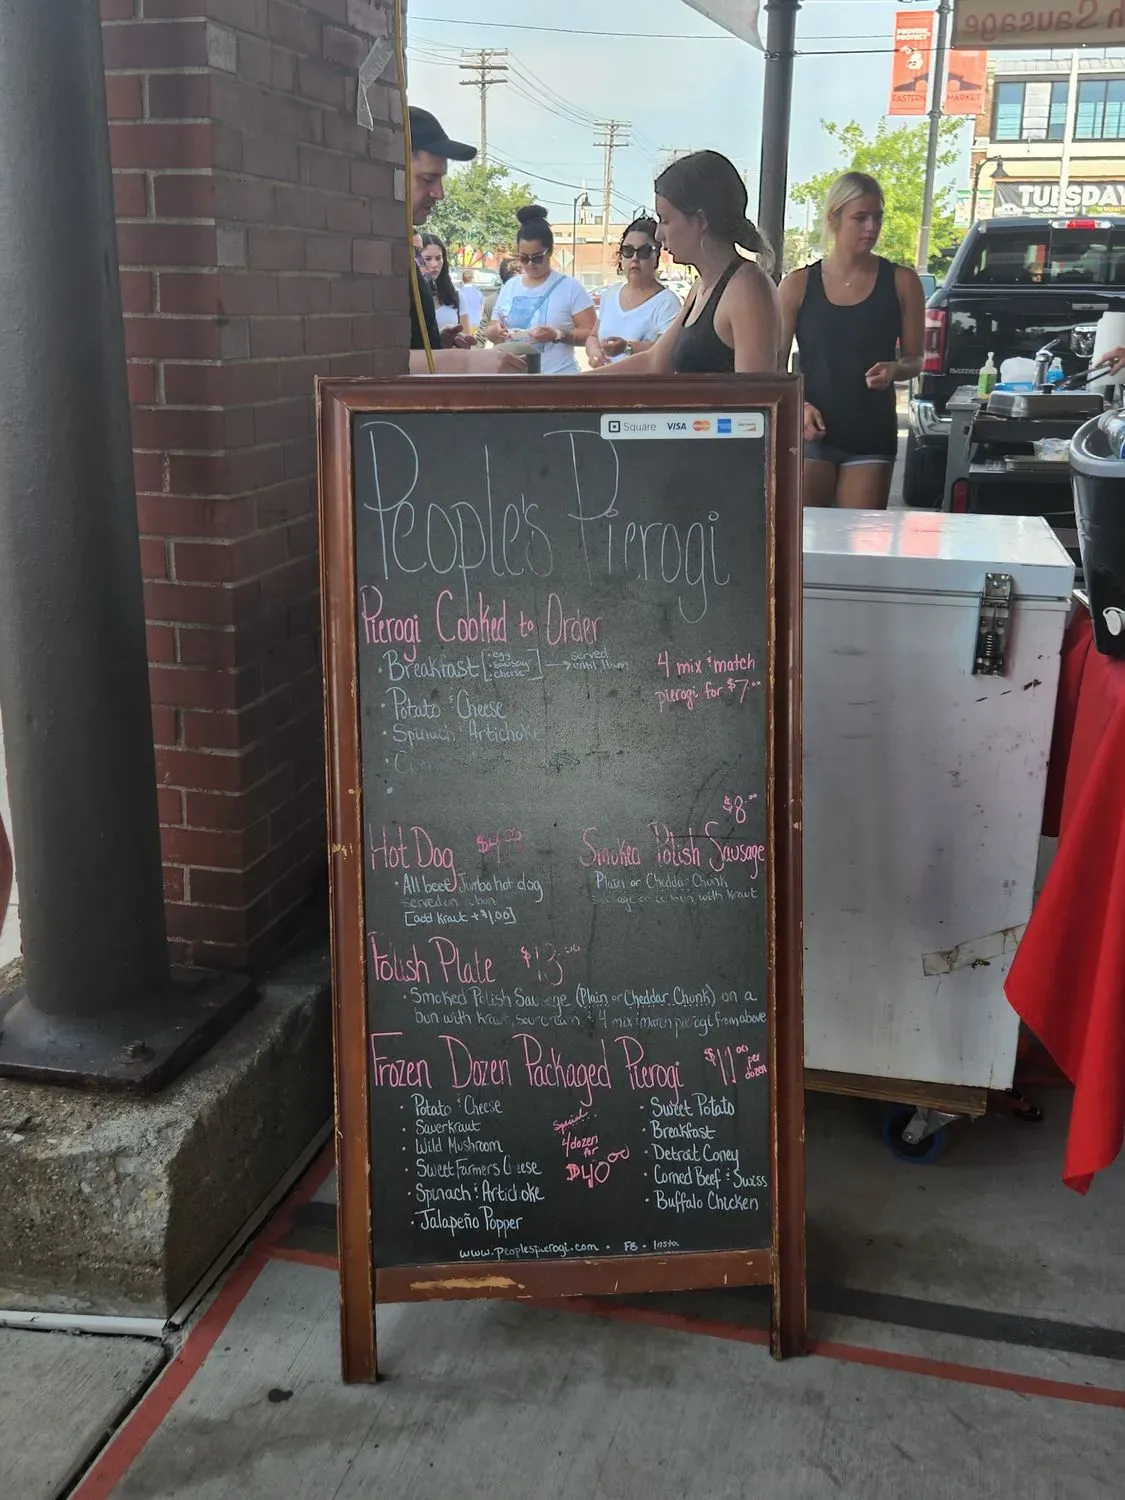 Sausage
EASTERN MARKET
TUESDAY
Square VISA
People's Pierogi
Pierogi Cooked to Order
• Breakfast [• egg • sausage • cheese] → served until 11am
4 mix & match
pierogi for $7.00
• Potato & Cheese
• Spinach & Artichoke
$8.00
Hot Dog $4.00
Smoked Polish Sausage
• All beef Jumbo hot dog
served on a bun
[add Kraut +$1.00]
Plain or Cheddar Chunk
sausage on a bun with Kraut
Polish Plate $13.00
• Smoked Polish Sausage (Plain or Cheddar Chunk) on a
bun with Kraut, sour cream & 4 mix & match pierogi from above
Frozen Dozen Packaged Pierogi $11.00 per dozen
• Potato & Cheese
• Sauerkraut
• Wild Mushroom
• Sweet Farmers Cheese
• Spinach & Artichoke
• Jalapeño Popper
Special
4 dozen
for
$40.00
• Sweet Potato
• Breakfast
• Detroit Coney
• Corned Beef & Swiss
• Buffalo Chicken
www.peoplespierogi.com • FB • Insta